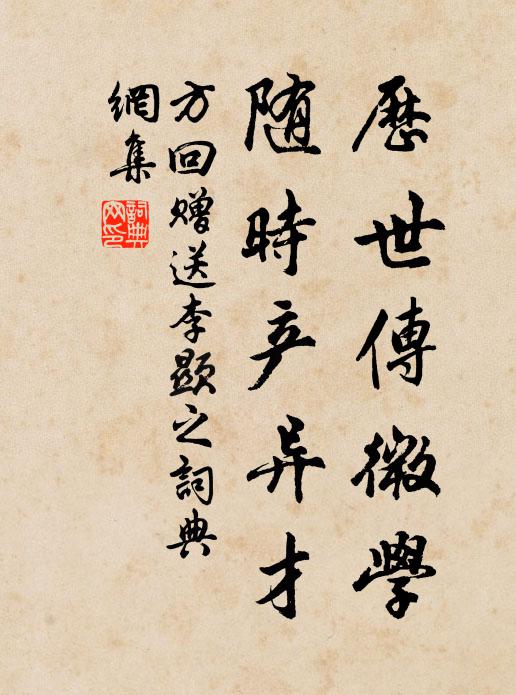 歷世傳微學
隨時产异才
方回贈送李顯之詞典
網集
詞典
网印